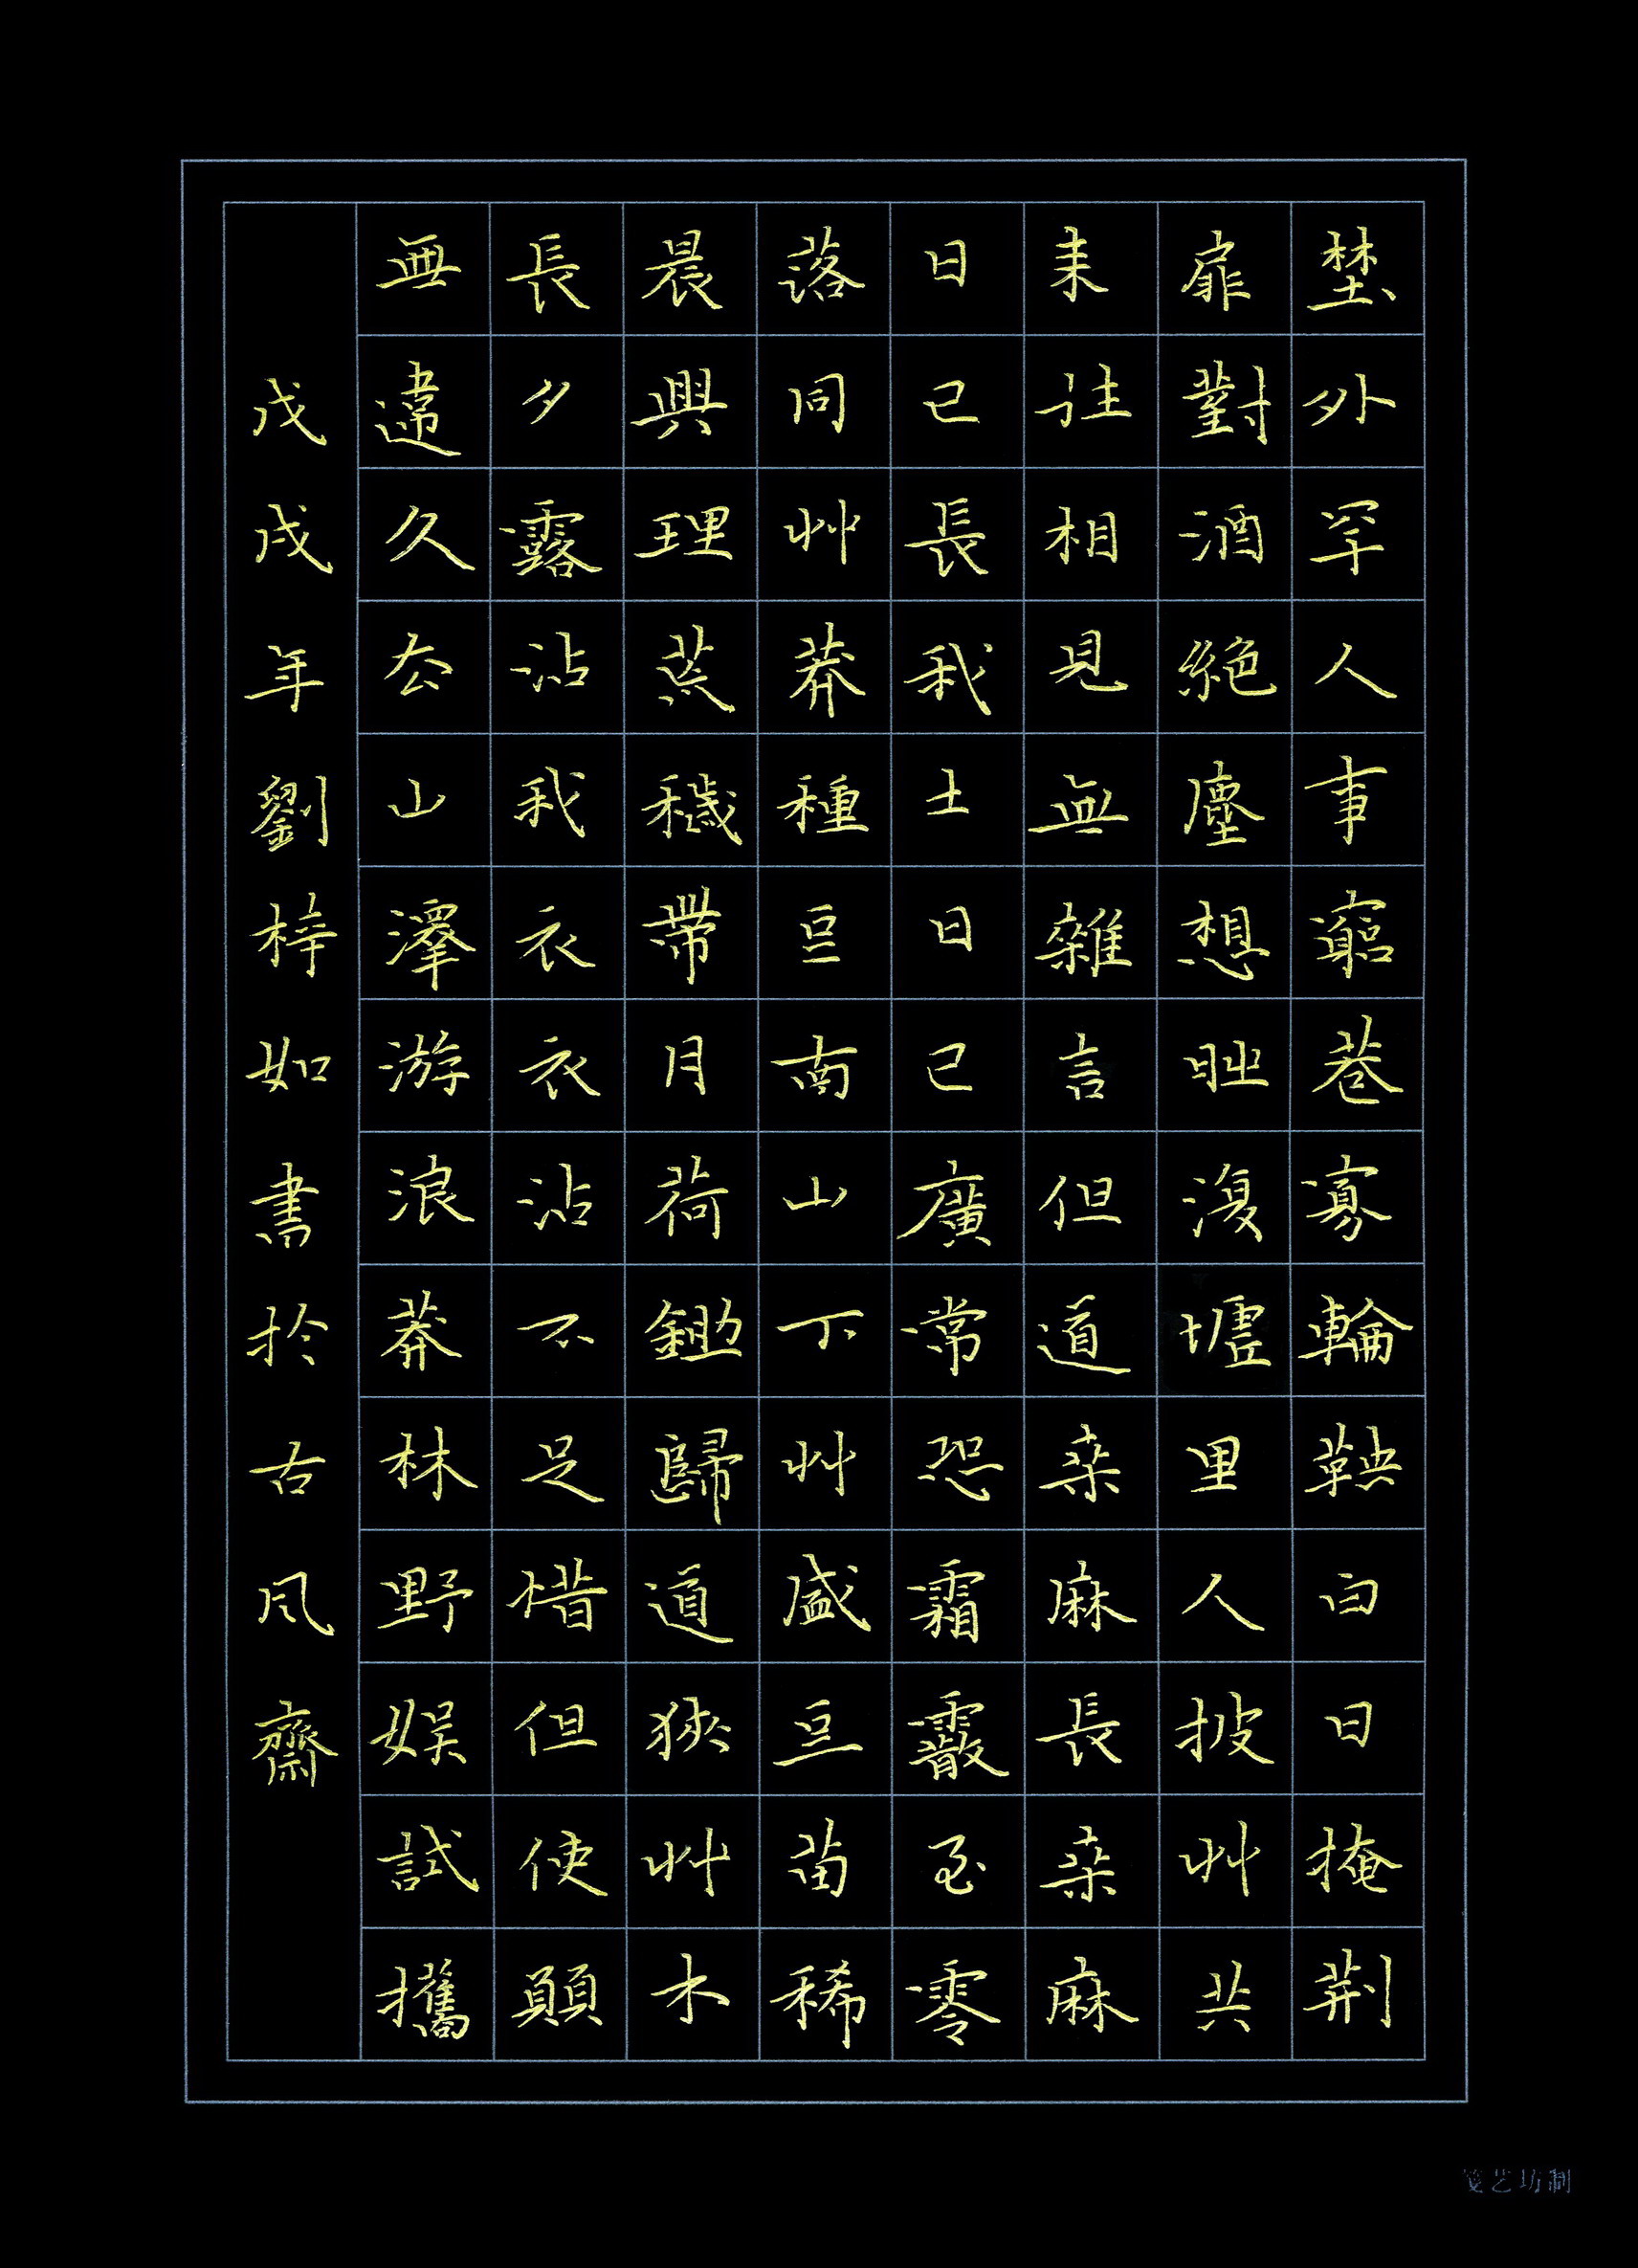 埜外罕人事窮巷寡輪鞅白日掩荆
扉對酒絕塵想時復墟里人披艸共
来往相見無雜言但道桑麻長桑麻
日已長我土日已廣常恐霜霰至零
落同艸莽種豆南山下艸盛豆苗稀
晨興理荒穢帶月荷鋤歸道狹艸木
長夕露沾我衣衣沾不足惜但使願
無違久去山澤游浪莽林野娛試攜
戊戌年劉梓如書於古風齋
笺艺坊制